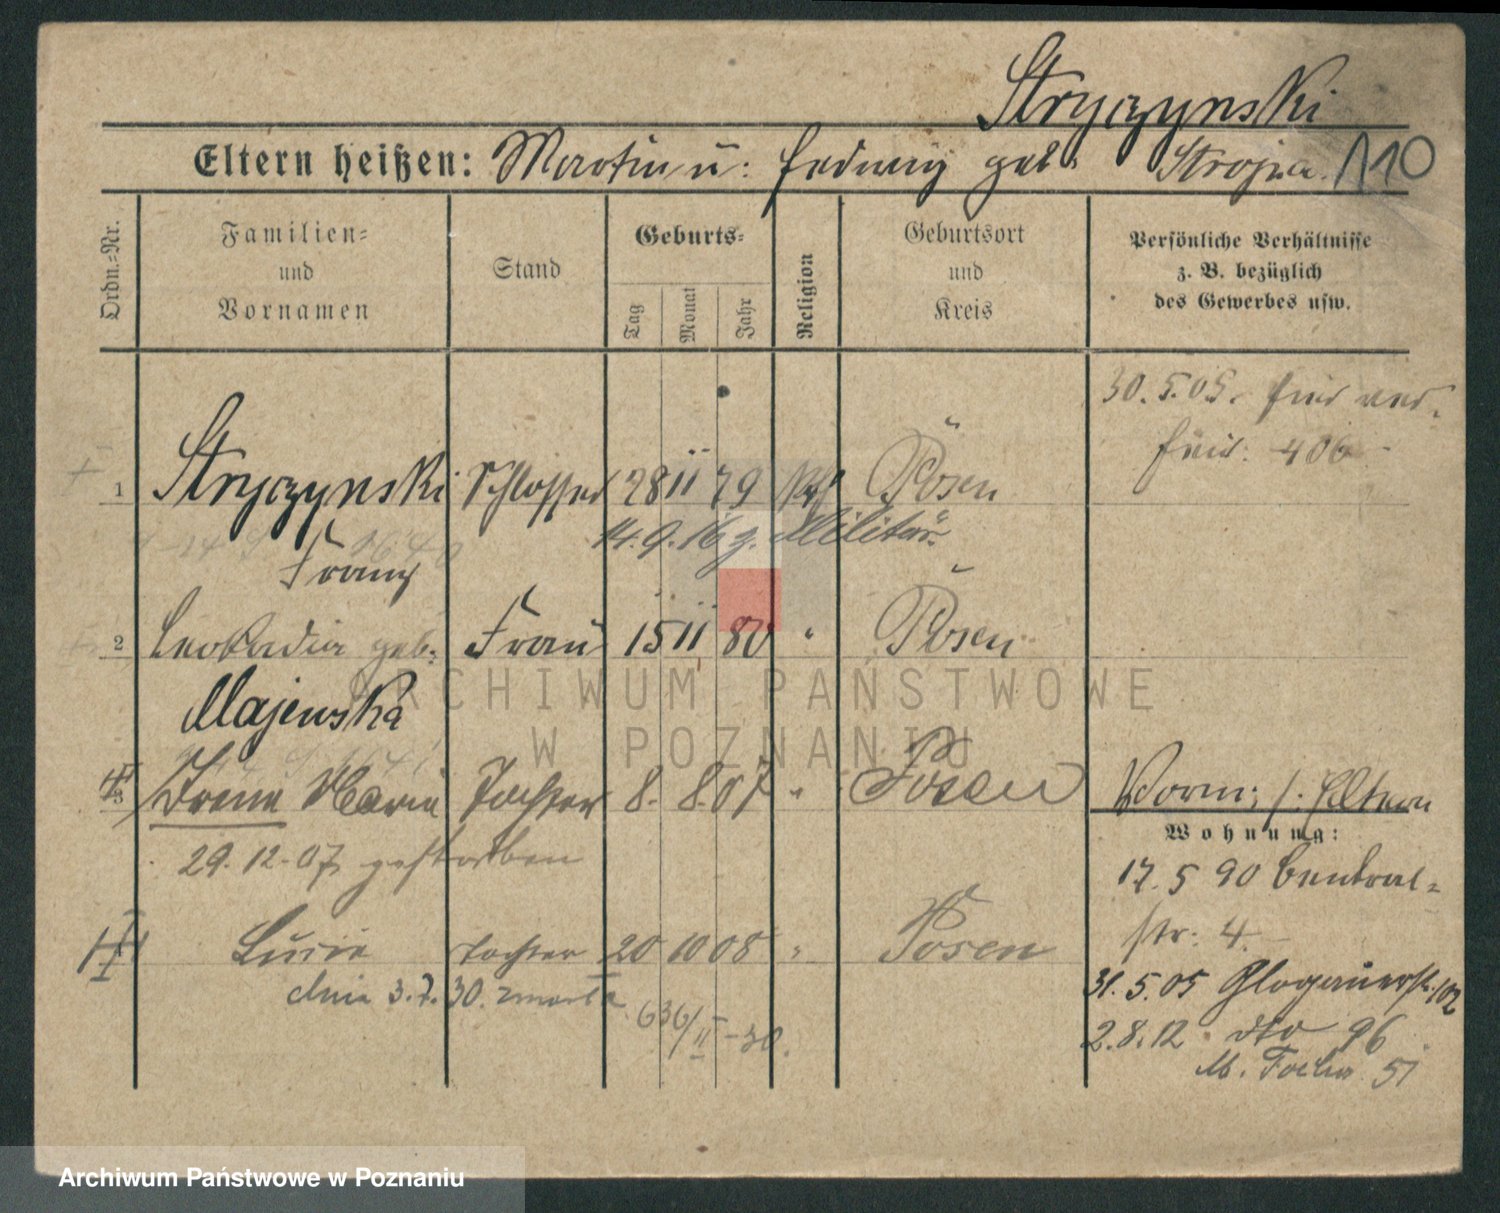 Stryczynski
Eltern heißen: Martin u: Hedwig geb: Strojna. 110
Ordn.-Nr.
Familien- und Vornamen
Stand
Geburts-
Tag Monat Jahr
Religion
Geburtsort und Kreis
Persönliche Verhältnisse z. B. bezüglich des Gewerbes usw.
30. 5. 05.
406
1 Stryczynski Schlosser 28 11 79 kth Posen
14. 9. 16 z. Militär.
Franz
2 Leokadia geb: Frau 15 11 80 " Posen
Majewska
ARCHIWUM PAŃSTWOWE
W POZNANIU
3 Irene Maria Tochter 8. 8. 07 " Posen
Vorm: /: Eltern
Wohnung:
29. 12. 07 gestorben
17. 5 90 Central-
str: 4.
Lucie Tochter 20 10 08 " Posen
dnia 3. 7. 30. zmarła
636/II-30.
31. 5. 05 Glogauerstr. 102
2. 8. 12 dto 96
M. Focha 51
Archiwum Państwowe w Poznaniu